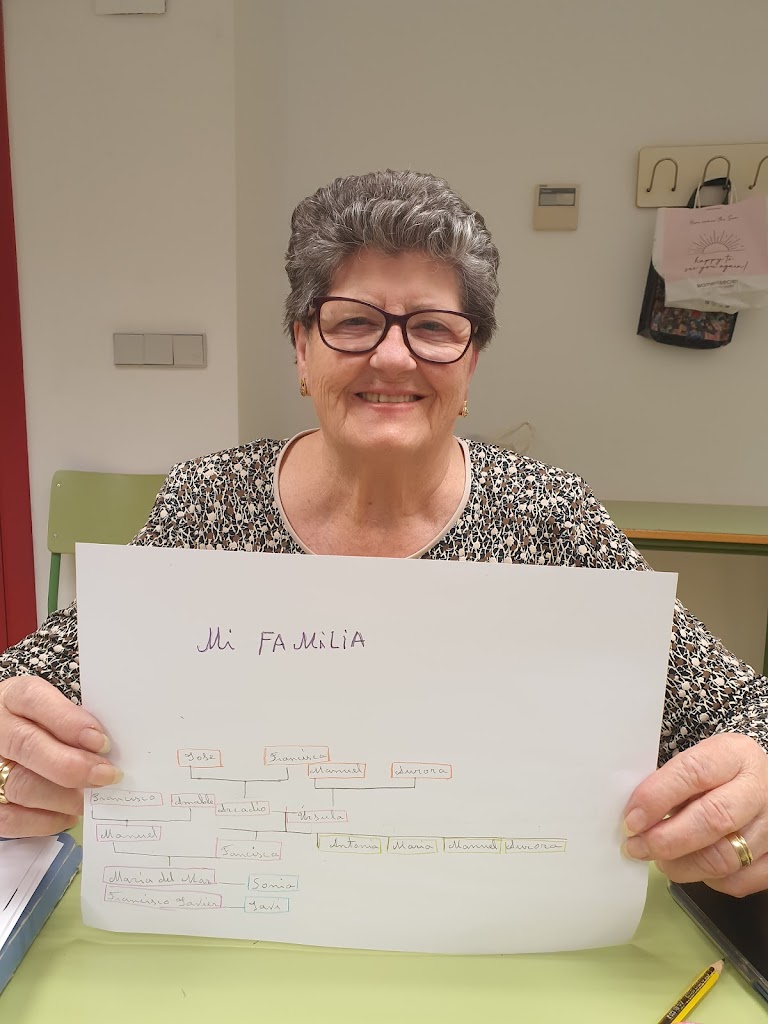 happy to
see you again!
Mi FAMiLiA
Jose Francisca
Manuel Aurora
Francisco Amalia Arcadio Úrsula
Manuel Fancisca Antonia Maria Manuel Aurora
Maria del Mar Sonia
Francisco Javier Javi